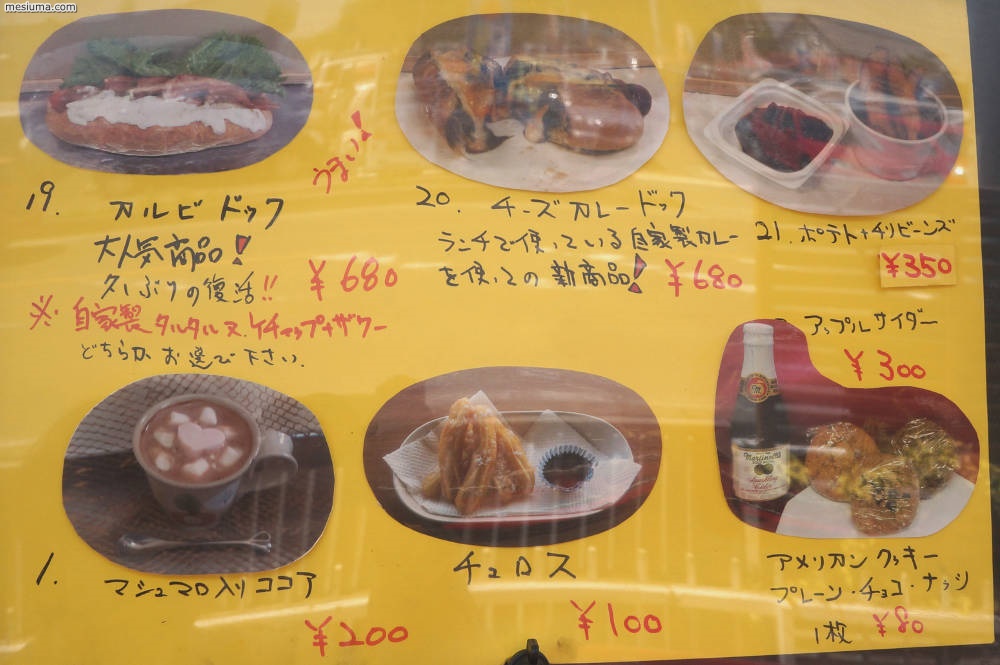 mesiuma.com
うまい!
19. カルビドック
大人気商品!
久しぶりの復活!! ¥680
※自家製タルタル又、ケチャップ+ザワー
どちらかお選び下さい.
20. チーズカレードック
ランチで使っている自家製カレー
を使っての新商品! ¥680
21. ポテト+チリビーンズ
¥350
アップルサイダー
¥300
Martinelli's
Sparkling
Cider
1. マシュマロ入りココア
¥200
チュロス
¥100
アメリカンクッキー
プレーン・チョコ・ナッツ
1枚 ¥80